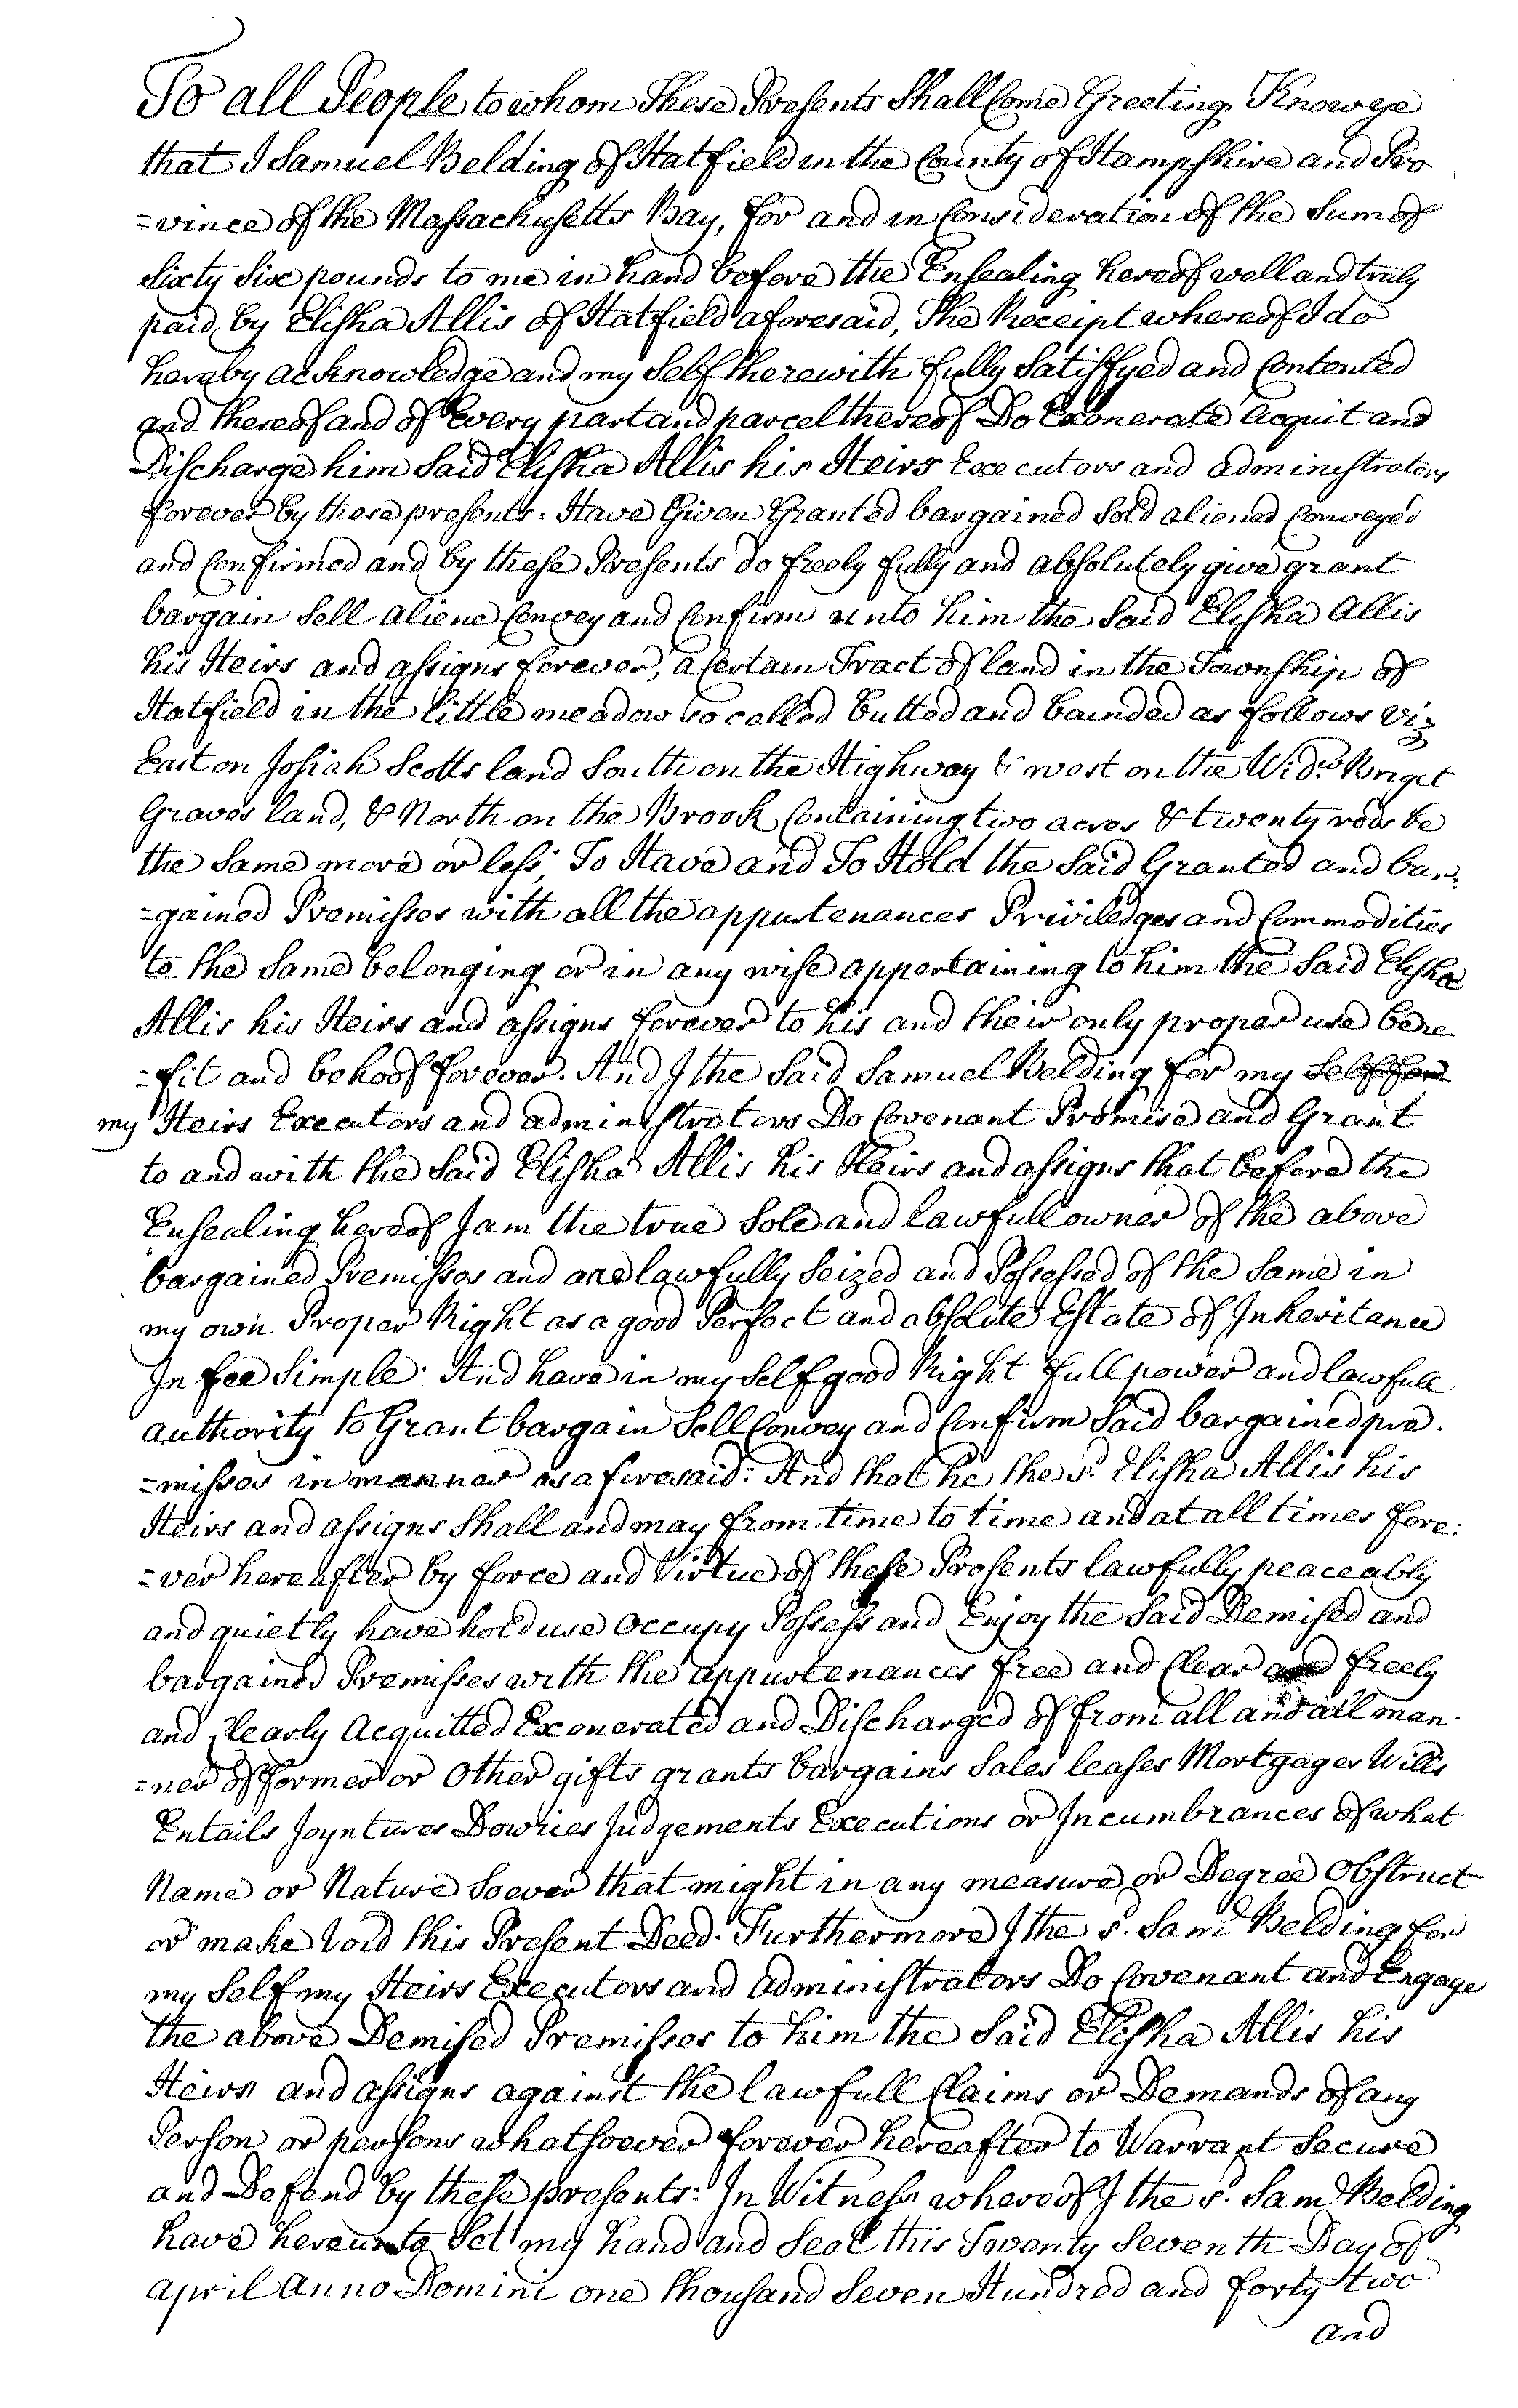 To all People to whom These Presents Shall Come Greeting Know ye
that I Samuel Belding of Hatfield in the County of Hampshire and Pro
=vince of the Massachusetts Bay, for and in Consideration of the Sum of
Sixty Six pounds to me in hand before the Ensealing hereof well and truly
paid by Elisha Allis of Hatfield aforesaid, The Receipt whereof I do
hereby acknowledge and my Self therewith fully Satisfyed and Contented
and thereof and of Every part and parcel thereof Do Exonerate acquit and
Discharge him Said Elisha Allis his Heirs Executors and administrators
forever by these presents. Have Given Granted bargained Sold aliened Conveyed
and Confirmed and by these Presents do freely fully and absolutely give grant
bargain Sell aliene Convey and Confirm unto him the Said Elisha Allis
his Heirs and assigns forever, a Certain Tract of land in the Township of
Hatfield in the little meadow so called butted and bounded as follows Viz
East on Josiah Scotts land South on the Highway & west on the Wido
Graves land, & North on the Brook Containing two acres & twenty rods be
the Same more or less, To Have and To Hold the Said Granted and bar
=gained Premisses with all the appurtenances Priviledges and Commodities
to the Same belonging or in any wise appertaining to him the Said Elisha
Allis his Heirs and assigns forever to his and their only proper use bene
=fit and behoof forever. And I the Said Samuel Belding for my Self for
my Heirs Executors and administrators Do Covenant Promise and Grant
to and with the Said Elisha Allis his Heirs and assigns that before the
Ensealing hereof I am the true Sole and lawfull owner of the above
bargained Premisses and are lawfully Seized and Possessed of the Same in
my own Proper Right as a good Perfect and absolute Estate of Inheritance
In fee Simple: And have in my Self good Right full power and lawfull
authority to Grant bargain Sell Convey and Confirm Said bargained pre.
=misses in manner as aforesaid: And that he the sd. Elisha Allis his
Heirs and assigns Shall and may from time to time and at all times fore:
=ver hereafter by force and Virtue of these Presents lawfully peaceably
and quietly have hold use occupy Possess and Enjoy the Said Demised and
bargained Premisses with the appurtenances free and Clear and freely
and Clearly Acquitted Exonerated and Discharged of from all and all man
=ner of former or Other gifts grants bargains Sales leases Mortgages Wills
Entails Joyntures Dowries Judgements Executions or Incumbrances of what
Name or Nature Soever that might in any measure or Degree Obstruct
or make Void this Present Deed. Furthermore I the sd. Saml Belding for
my Self my Heirs Executors and administrators Do Covenant and Engage
the above Demised Premisses to him the Said Elisha Allis his
Heirs and assigns against the lawfull Claims or Demands of any
Person or persons whatsoever forever hereafter to Warrant Secure
and Defend by these presents: In Witness whereof I the sd. Saml Belding
have hereunto Set my hand and Seal this Twenty Seventh Day of
April Anno Domini one thousand Seven Hundred and forty two
and